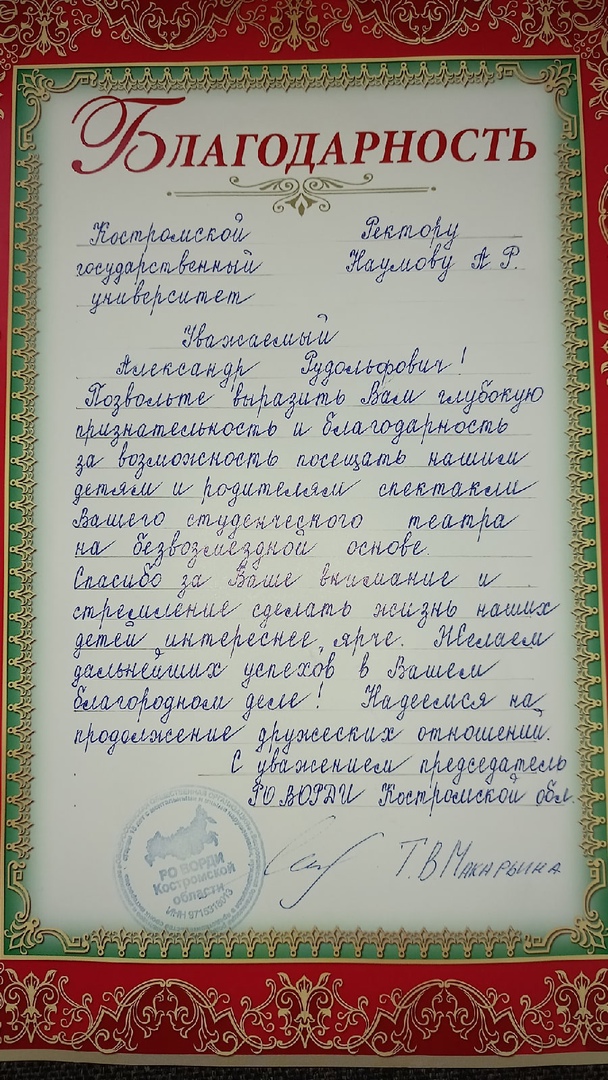 Благодарность
Костромской
государственный
университет
Ректору
Наумову А Р.
Уважаемый
Александр Рудольфович!
Позвольте выразить Вам глубокую
признательность и благодарность
за возможность посещать нашим
детям и родителям спектакли
Вашего студенческого театра
на безвозмездной основе.
Спасибо за Ваше внимание и
стремление сделать жизнь наших
детей интереснее, ярче. Желаем
дальнейших успехов в Вашем
благородном деле! Надеемся на
продолжение дружеских отношений.
С уважением председатель
РО ВОРДИ Костромской обл.
Т.В Макарьина
РО ВОРДИ
Костромской
области
ИНН 9715318013